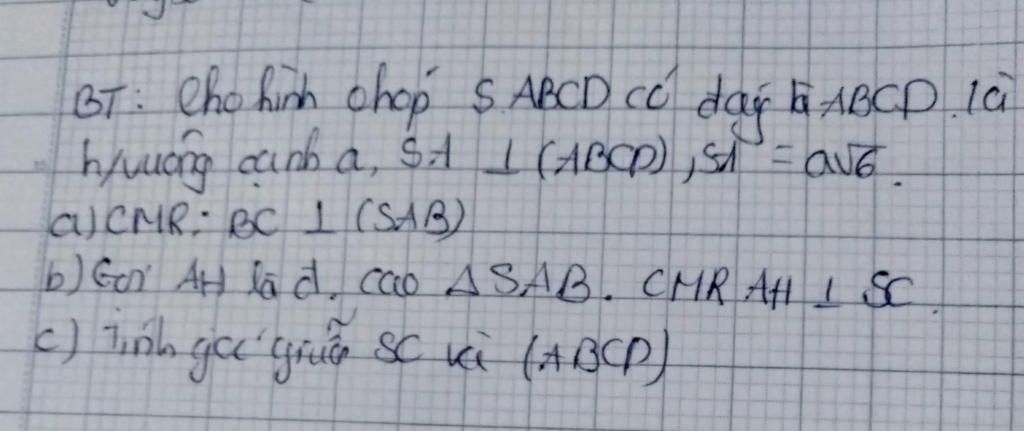 BT: Cho hình chóp S.ABCD có đáy là ABCD là
h/vuông cạnh a, SA ⊥ (ABCD), SA = a√6.
a) CMR: BC ⊥ (SAB)
b) Gọi AH là đ. cao ΔSAB. CMR AH ⊥ SC.
c) Tính góc giữa SC và (ABCD)